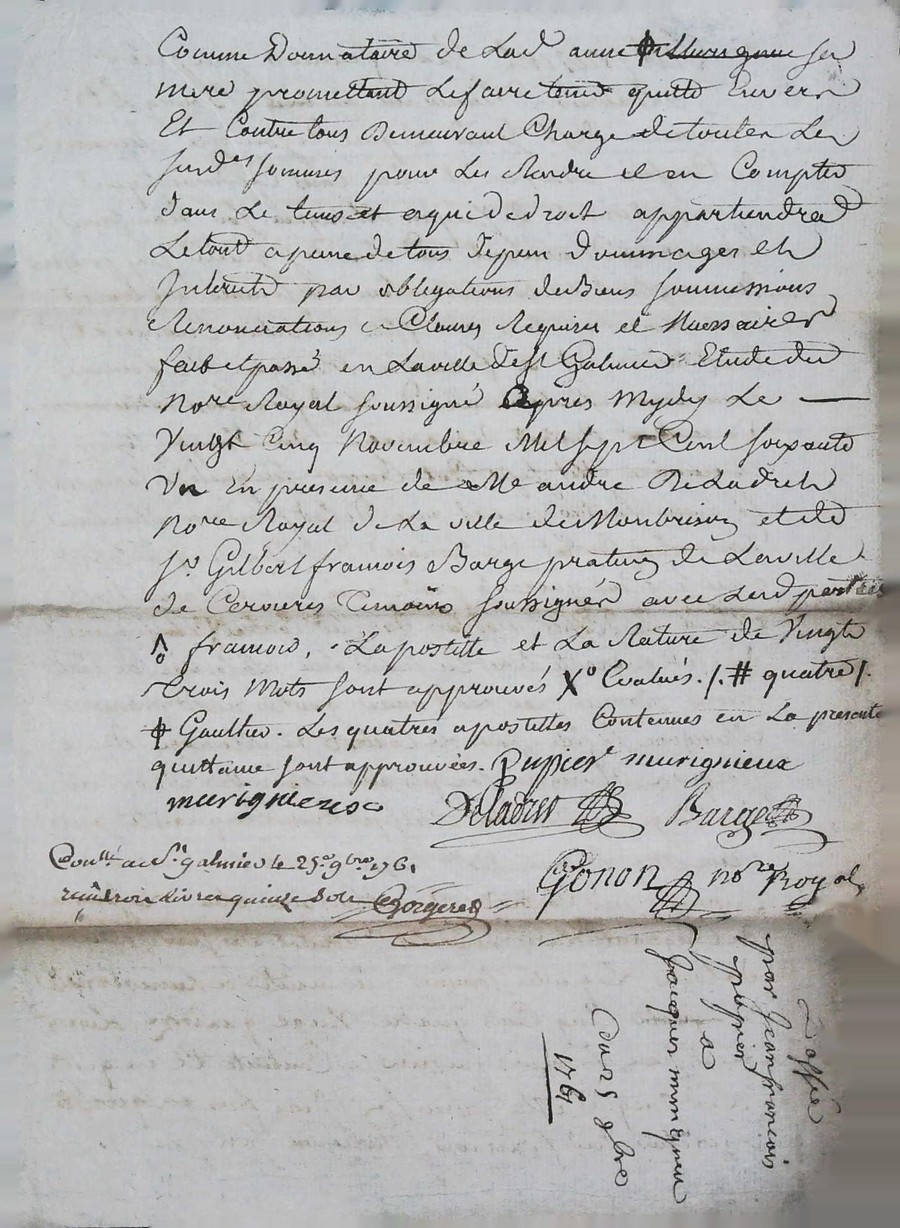 Comme Donnataire de Lad anne sa
mere promettant Le faire tenir quitte Envers
Et Contre tous Demeurant Chargé de toutes Les
susdes sommes pour Les Rendre et en Compter
dans Le tems et a qui de droit appartiendra
Le tout a peine de tous depens dommages et
Interets par obligations de Biens soumissions
Renonciations et Clauses Requises et Necessaires
fait et passé en La ville de st Galmier Etude du
Nore Royal soussigné Apres Mydy Le
Vingt Cinq Novembre Mil sept Cent soixante
Un En presence de Me andré Deladret
Nore Royal de La ville de Montbrison et de
sr Gilbert francois Barge praticien de La ville
de Cervieres temoins soussignés avec Lesd parties
francois, . La postille et La Rature de Vingt
trois Mots sont approuvés Xo Evalués . /. # quatre /.
Gaultier . Les quatres apostilles Contenues en La presente
quittance sont approuvées . Pupier murignieux
murignieux
Deladret Barge
Conllé a St galmier le 25e 9bre 1761
trois Livres quinze sols Gorgeret
Gonon nore Royal
par Jean francois
pupier
a
Jacques murignieu
Du 25 9bre
1761